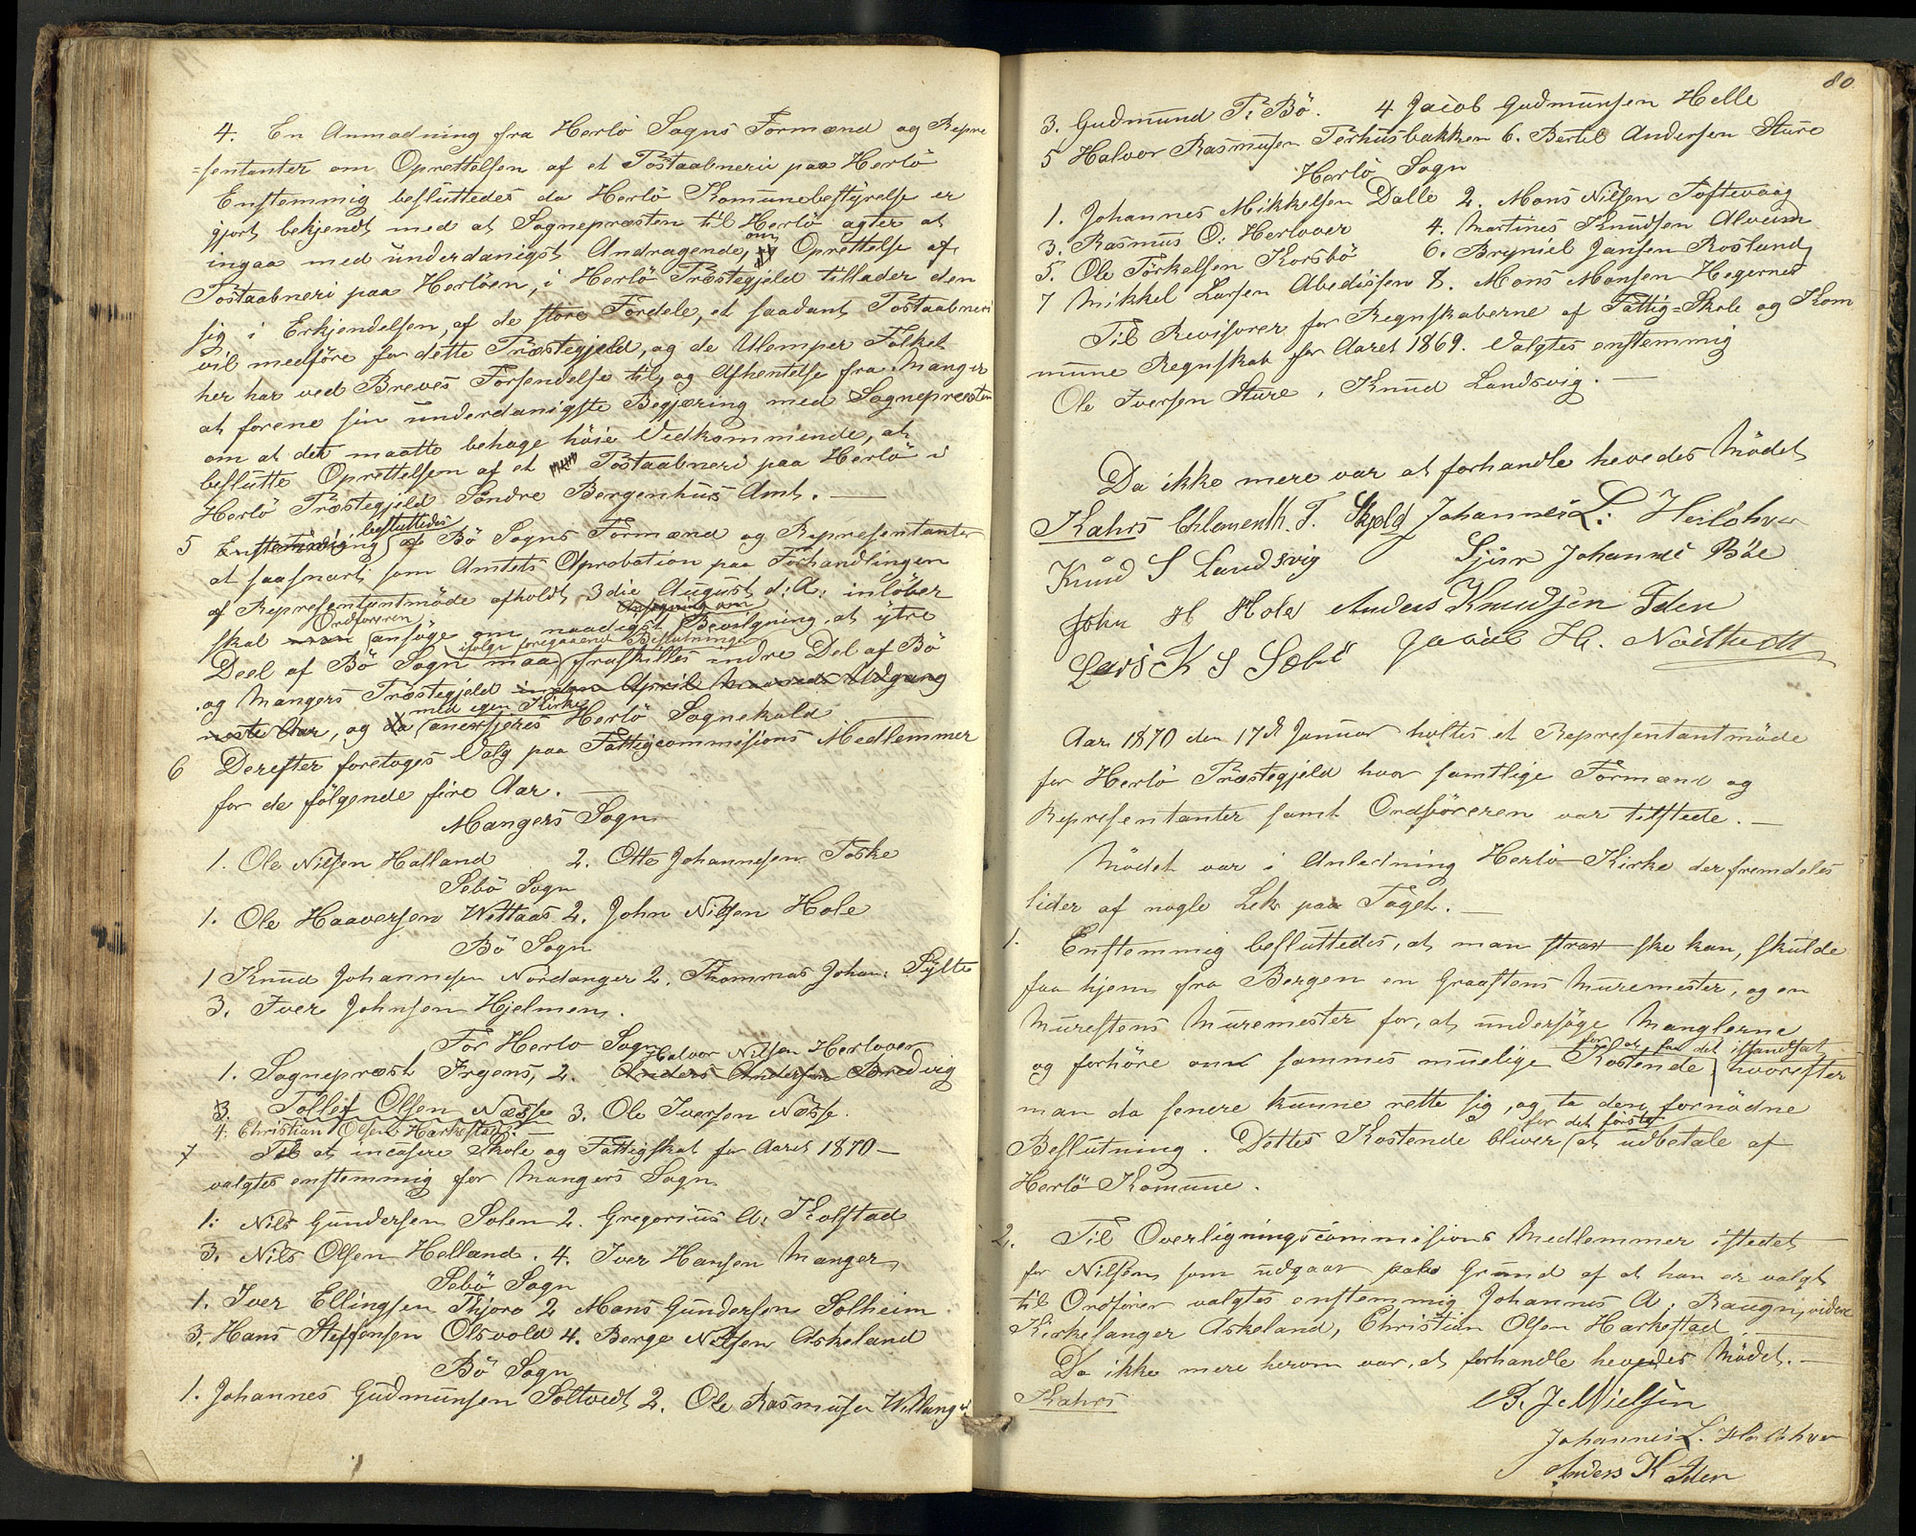 4. En Anmodning fra Herlö Sogns Formænd og Repre
=sentanter om Oprettelsen af et Postaabneri paa Herlö
Enstemmig besluttedes da Herlö Komunebestyrelse er
gjort bekjendt med at Sognepræsten til Herlö agter at
ingaa med underdanigst Andragende, om Oprettelse af
Postaabneri paa Herlöen, i Herlö Præstegjeld tillader den
sig i Erkjendelsen, af de store Fordele, et saadant Postaabneri
vil medføre for dette Præstegjeld, og de Ulemper Folket
her har ved Breves Forsendelse til, og Afhentelse fra Manger
at forene sin underdanigste Begjæring med Sognepresten
om at det maatte behage höie Vedkommende, at
beslutte Oprettelsen af et Postaabneri paa Herlö i
Herlö Præstegjeld Söndre Bergenhus Amt. —
besluttedes
5 Enstemmig af Bö Sogns Formænd og Representanter
at saasnart som Amtets Aprobation paa Forhandlingen
af Representantmöde afholdt 3die August d: A: inlöber
Ordføreren Ansøgning om
skal ansøge om naadigst Bevilgning at ytre
ifølge foregaaend Beslutninge
Deel af Bö Sogn maa fraskilles indre Del af Bö
og Mangers Præstegjeld April Maaneds Udgang
med egen Kirke
neste Aar, og da anexsjeres Herlö Sognekald
6 Derefter foretoges Valg paa Fattigcommisions Medlemmer
for de følgende fire Aar. —
Mangers Sogn
1. Ole Nilsen Halland 2. Otte Johannesen Toske
Sebö Sogn
1. Ole Haaversen Wettaas 2. John Nilsen Hole
Bö Sogn
1 Knud Johannesen Nordanger 2. Thommas Johan: Sylte
3. Iver Johnsen Hjelmen.
For Herlo Sogn
Halvor Nilsen Herlover
1. Sognepræst Irgens, 2. Anders Andersen Bredvig
3. Tollef Olsen Næsse 3. Ole Iversen Næsse.
4. Christian Olsen Harkestad. —
7 Til at incasere Skole og Fattigskat for Aaret 1870 —
valgtes enstemmig for Mangers Sogn
1: Nils Gundersen Solen 2. Gregorius A: Kolstad
3. Nils Olsen Helland. 4. Iver Hansen Manger
Sebö Sogn
1. Iver Ellingsen Fjoro 2 Mons Gundersen Solheim
3. Hans Steffensen Olsvold 4. Berge Nilsen Askeland
Bö Sogn
1. Johannes Gudmunsen Soltvedt 2. Ole Rasmusen Willanger
80
3. Gudmund T. Bö. 4 Jacob Gudmunsen Helle
5 Halvor Rasmusen Torhusbakken 6. Bertel Andersen Sture
Herlö Sogn
1. Johannes Mikkelsen Dalle 2. Mons Nilsen Toftevaag
3. Rasmus O: Herlover 4. Martines Knudsen Alvum
5. Ole Torkelsen Korsbö 6. Bryniel Jansen Rosland
7 Mikkel Larsen Abedissen 8. Mons Monsen Hegernes
Til Revisorer for Regnskaberne af Fattig=Skole og Kom
mune Regnskab for Aaret 1869. Valgtes enstemmig
Ole Iversen Sture, Knud Landsvig. —
Da ikke mere var at forhandle hevedes Mödet
Kahrs Clementh. T. Skjold Johannes L: Herlöhver
Knud S Landsvig Sjur Johannes Böe
John H Hole Anders Knudsen Iden
Lars K S Sebö Jacob H.
Aar 1870 den 17de Januar holtes et Representantmöde
for Herlö Præstegjeld hvor samtlige Formænd og
Representanter samt Ordföreren var tilstede. —
Mödet var i Anledning Herlö Kirke der fremdeles
lider af nogle Lek paa Taget. —
1. Enstemmig besluttedes, at man strax ske kan, skulde
faa hjem fra Bergen en Graastens Muremester, og en
Murestens Muremester for, at undersöge Manglerne
for at faa det istandsat
og forhöre om sammes muelige Kostende hvorefter
man da senere kunne rette sig, og ta den fornödne
for det förste
Beslutning. Dettes Kostende bliver at udbetale af
Herlö Komune.
2. Til Overligningscommisions Medlemmer istedet
for Nilsen som udgaar paa Grund af at han er valgt
til Ordfører valgtes enstemmig Johannes A. Raugn, videre
Kirkesanger Askeland, Christian Olsen Harkestad
Da ikke mere herom var, at forhandle hevedes Mödet. —
Kahrs B. J. Nielsen
Johannes L. Herlöhver
Anders K Iden